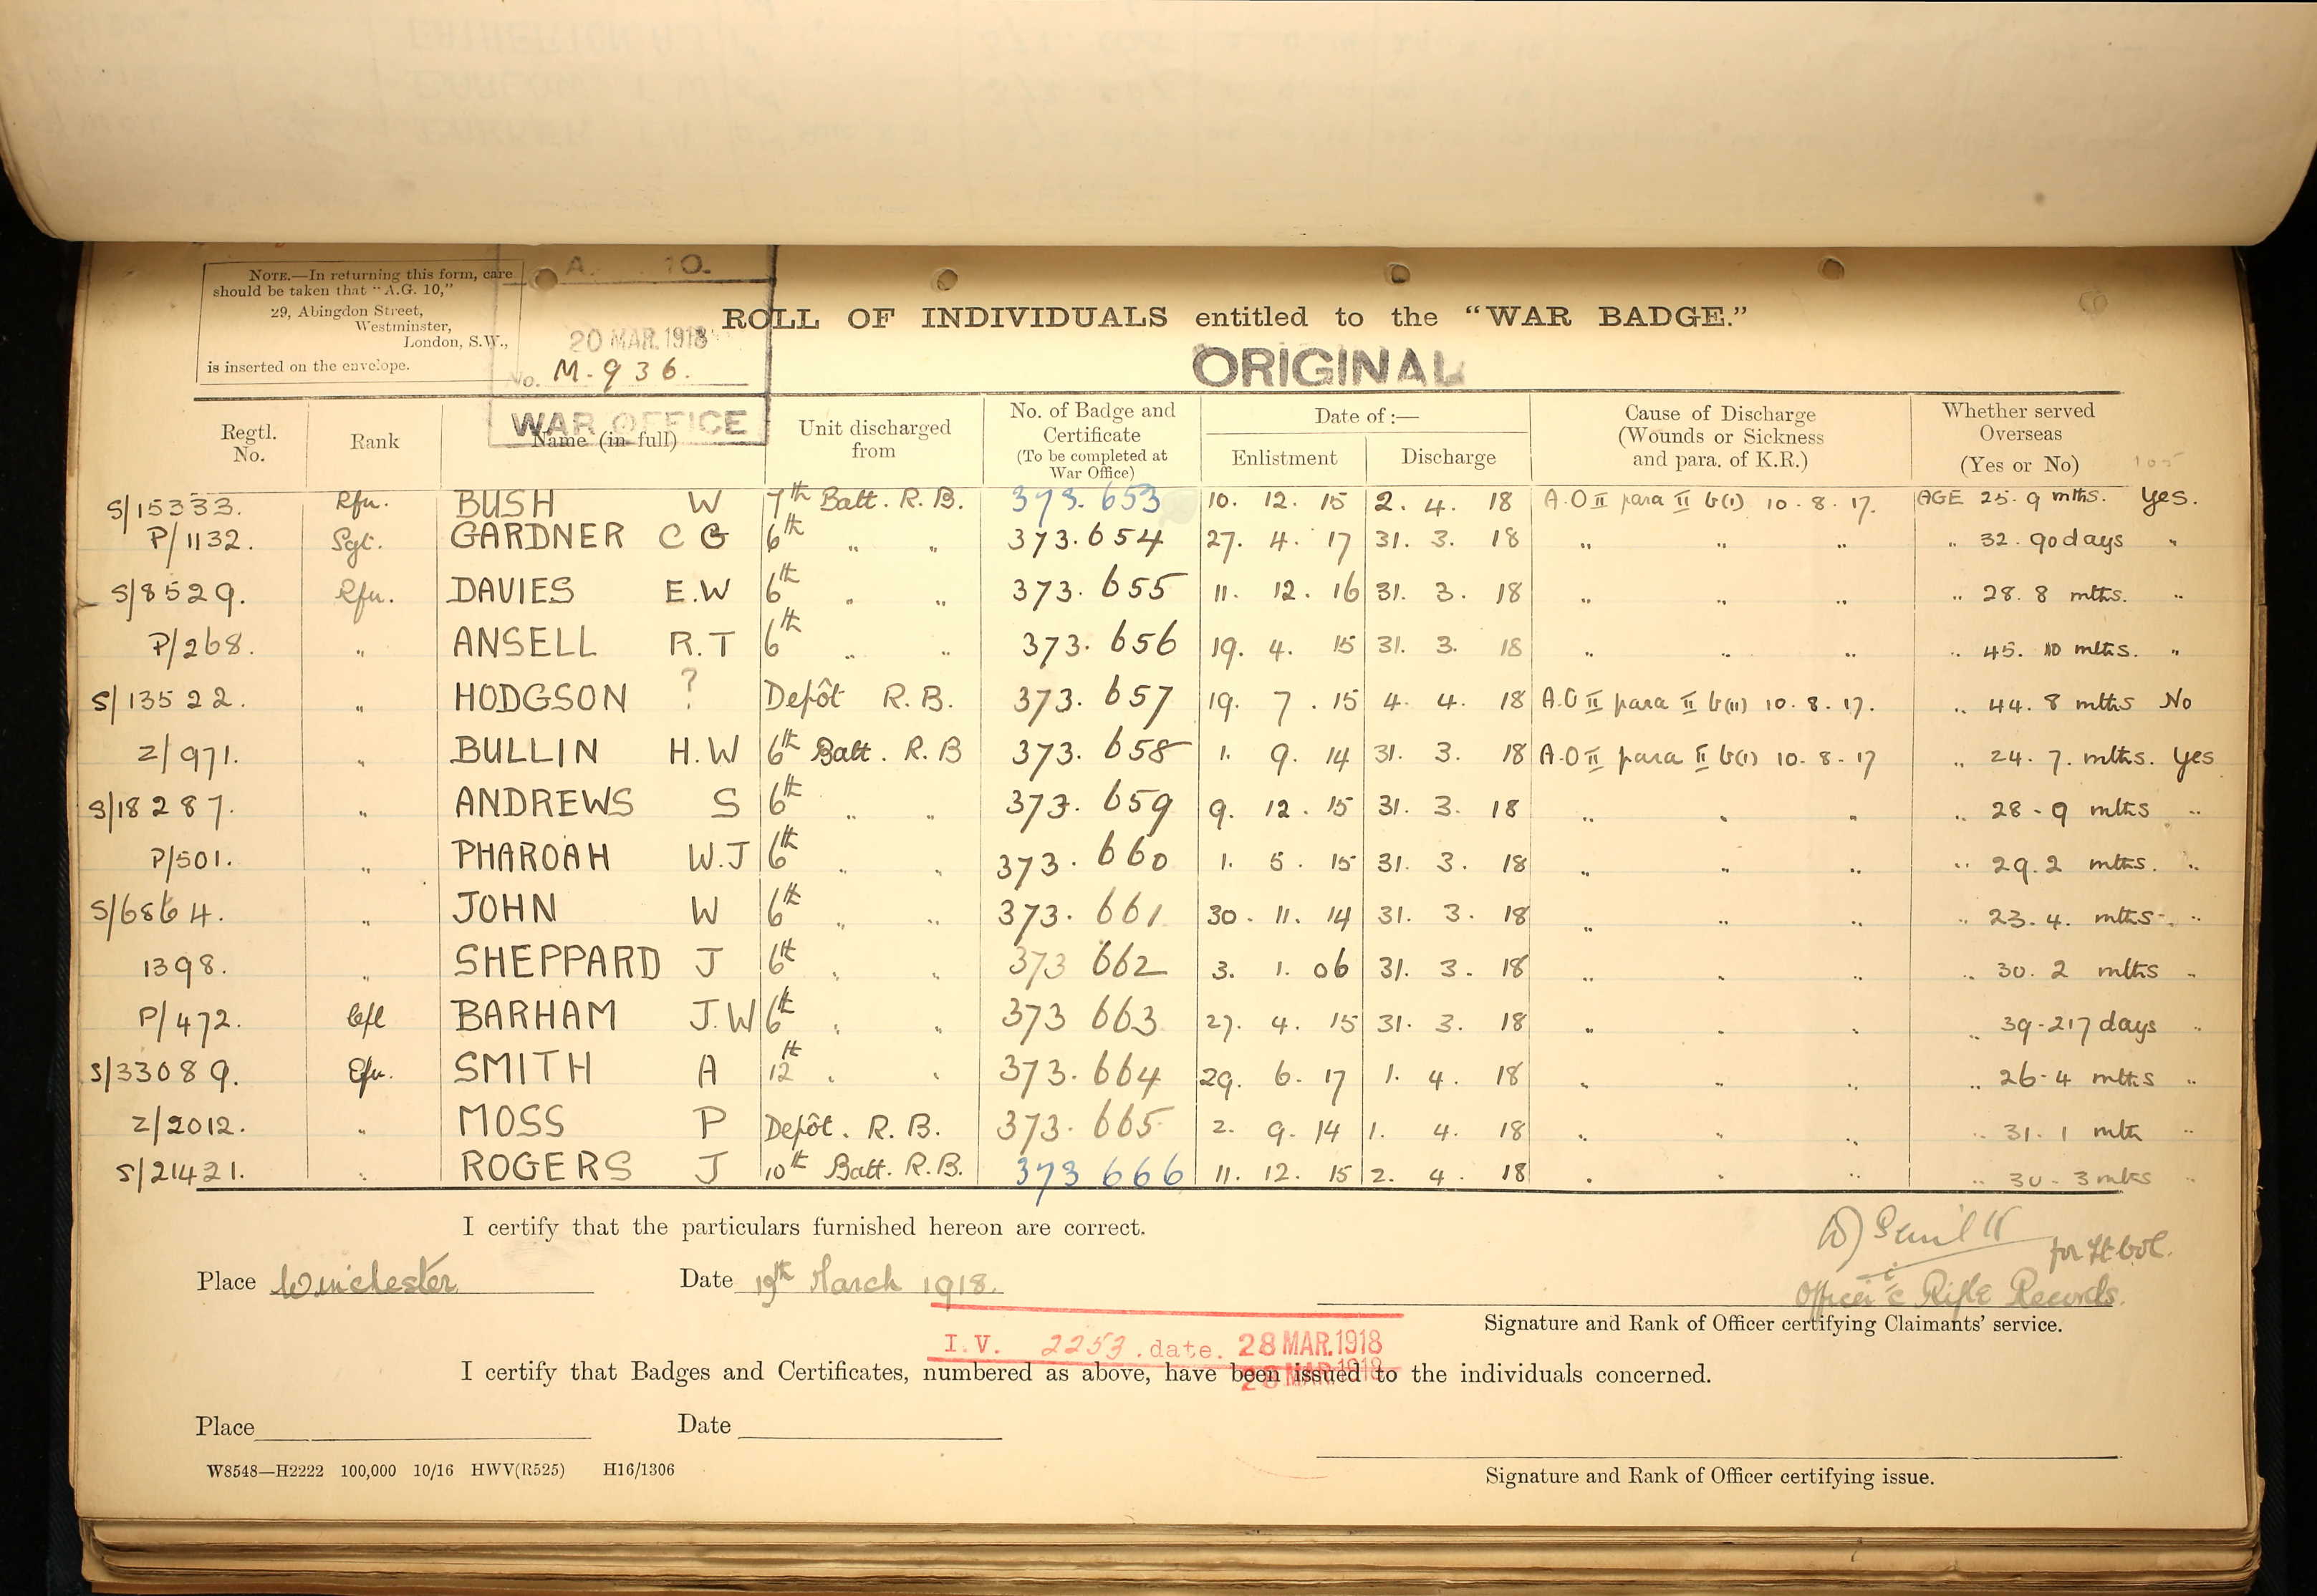 NOTE.—In returning this form, care
should be taken that "A.G. 10,"
29, Abingdon Street,
Westminster,
London, S.W.,
is inserted on the envelope.
A. 10.
20 MAR. 1918
No. M-936.
WAR OFFICE
ROLL OF INDIVIDUALS entitled to the "WAR BADGE."
ORIGINAL
Regtl. No. Rank Name (in full) Unit discharged from No. of Badge and Certificate (To be completed at War Office) Date of :— Enlistment Discharge Cause of Discharge (Wounds or Sickness and para. of K.R.) Whether served Overseas (Yes or No) 105
S/15333. Rfn. BUSH W 7th Batt. R.B. 373.653 10. 12. 15 2. 4. 18 A.O II para II b(1) 10.8.17. AGE 25. 9 mths. Yes.
P/1132. Sgt. GARDNER C G 6th " " 373.654 27. 4. 17 31. 3. 18 " " " " 32. 90 days "
S/8529. Rfn. DAVIES E.W 6th " " 373.655 11. 12. 16 31. 3. 18 " " " " 28. 8 mths. "
P/268. " ANSELL R.T 6th " " 373.656 19. 4. 15 31. 3. 18 " " " " 45. 10 mths. "
S/13522. " HODGSON ? Depôt R.B. 373.657 19. 7. 15 4. 4. 18 A.O II para II b(11) 10.8.17. " 44. 8 mths No
Z/971. " BULLIN H.W 6th Batt. R.B 373.658 1. 9. 14 31. 3. 18 A.O II para II b(1) 10.8.17 " 24. 7. mths. Yes
S/18287. " ANDREWS S 6th " " 373.659 9. 12. 15 31. 3. 18 " " " " 28-9 mths "
P/501. " PHAROAH W.J 6th " " 373.660 1. 5. 15 31. 3. 18 " " " " 29.2 mths. "
S/6864. " JOHN W 6th " " 373.661 30. 11. 14 31. 3. 18 " " " " 23.4. mths. "
1398. " SHEPPARD J 6th " " 373 662 3. 1. 06 31. 3. 18 " " " " 30. 2 mths "
P/472. Cpl BARHAM J.W 6th " " 373 663 27. 4. 15 31. 3. 18 " " " " 39-217 days "
S/33089. Rfn. SMITH A 12th " " 373.664 29. 6. 17 1. 4. 18 " " " " 26-4 mths "
Z/2012. " MOSS P Depôt. R.B. 373.665 2. 9. 14 1. 4. 18 " " " " 31. 1 mth "
S/21421. " ROGERS J 10th Batt. R.B. 373 666 11. 12. 15 2. 4. 18 " " " " 30-3 mths "
I certify that the particulars furnished hereon are correct.
for Lt Col.
Place Winchester Date 19th March 1918. Officer i/c Rifle Records.
Signature and Rank of Officer certifying Claimants' service.
I.V. 2253. date. 28 MAR. 1918
28 MAR. 1918
I certify that Badges and Certificates, numbered as above, have been issued to the individuals concerned.
Place Date
W8548—H2222 100,000 10/16 HWV(R525) H16/1306
Signature and Rank of Officer certifying issue.